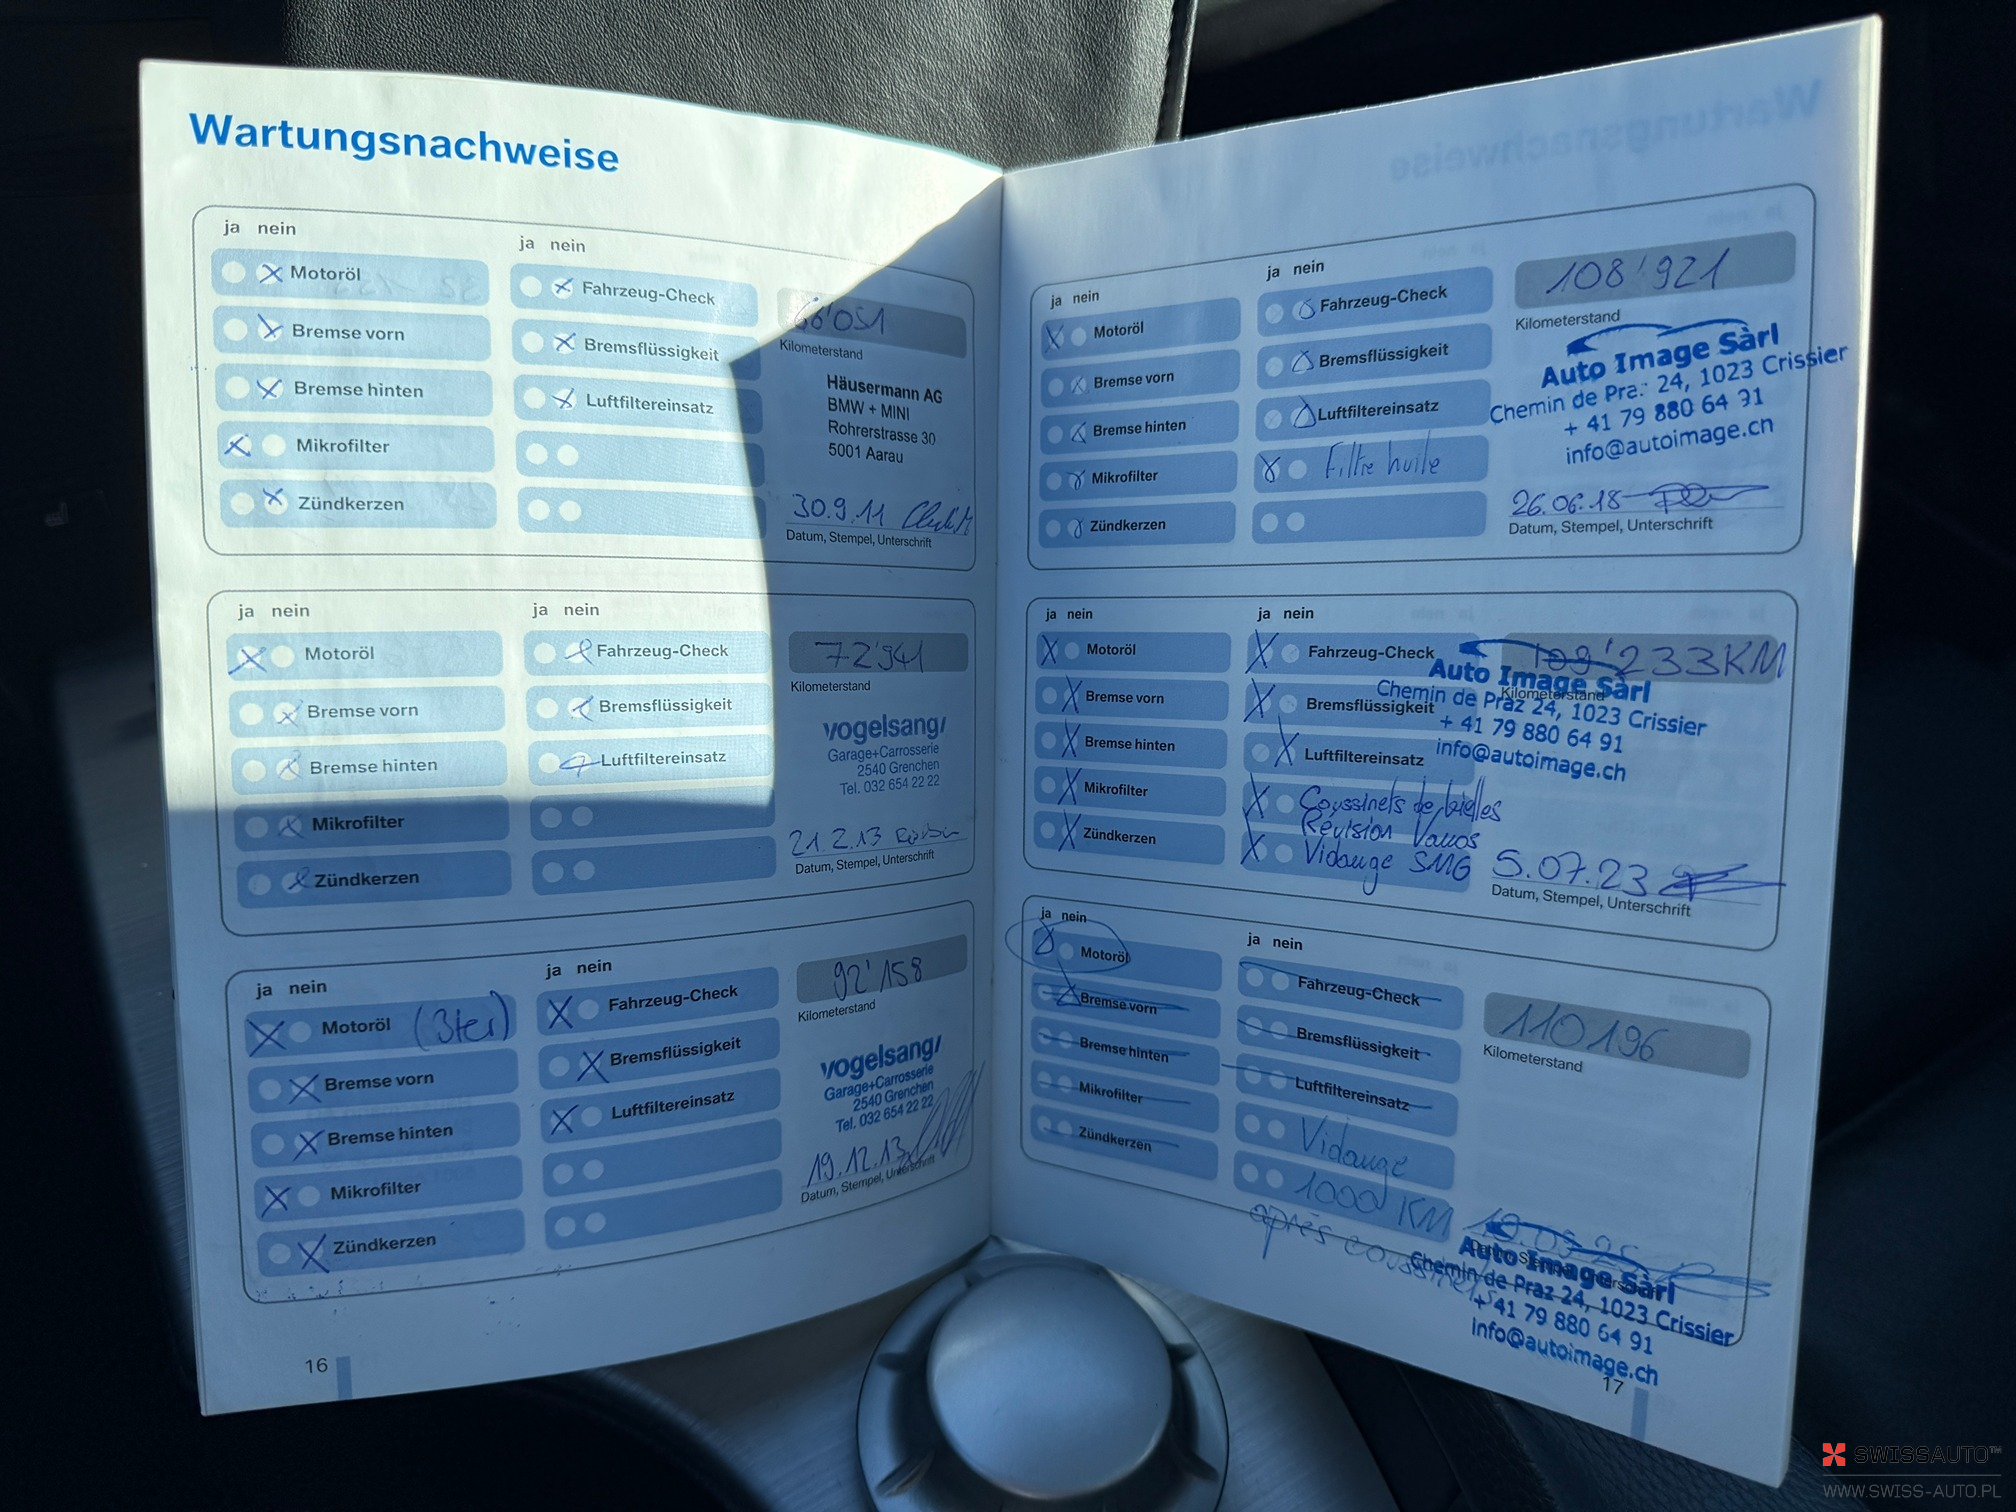 Wartungsnachweise
ja nein
Motoröl
Bremse vorn
Bremse hinten
Mikrofilter
Zündkerzen
ja nein
Fahrzeug-Check
Bremsflüssigkeit
Luftfiltereinsatz
66'051
Kilometerstand
Häusermann AG
BMW + MINI
Rohrerstrasse 30
5001 Aarau
30.9.11
Datum, Stempel, Unterschrift
ja nein
Motoröl
Bremse vorn
Bremse hinten
Mikrofilter
Zündkerzen
ja nein
Fahrzeug-Check
Bremsflüssigkeit
Luftfiltereinsatz
72'941
Kilometerstand
vogelsang/
Garage+Carrosserie
2540 Grenchen
Tel. 032 654 22 22
21.2.13
Datum, Stempel, Unterschrift
ja nein
Motoröl (3ter)
Bremse vorn
Bremse hinten
Mikrofilter
Zündkerzen
ja nein
Fahrzeug-Check
Bremsflüssigkeit
Luftfiltereinsatz
92'158
Kilometerstand
vogelsang/
Garage+Carrosserie
2540 Grenchen
Tel. 032 654 22 22
19.12.13
Datum, Stempel, Unterschrift
16
ja nein
Motoröl
Bremse vorn
Bremse hinten
Mikrofilter
Zündkerzen
ja nein
Fahrzeug-Check
Bremsflüssigkeit
Luftfiltereinsatz
Filtre huile
108'921
Kilometerstand
Auto Image Sàrl
Chemin de 24, 1023 Crissier
+ 41 79 880 64 91
info@autoimage.ch
26.06.18
Datum, Stempel, Unterschrift
ja nein
Motoröl
Bremse vorn
Bremse hinten
Mikrofilter
Zündkerzen
ja nein
Fahrzeug-Check
Bremsflüssigkeit
Luftfiltereinsatz
Coussinets de bielles
Révision Vanos
Vidange SMG
109'233KM
Kilometerstand
Auto Image Sàrl
Chemin de Praz 24, 1023 Crissier
+ 41 79 880 64 91
info@autoimage.ch
5.07.23
Datum, Stempel, Unterschrift
ja nein
Motoröl
Bremse vorn
Bremse hinten
Mikrofilter
Zündkerzen
ja nein
Fahrzeug-Check
Bremsflüssigkeit
Luftfiltereinsatz
Vidange
1000 KM
après coussinets
110196
Kilometerstand
Auto Image Sàrl
Chemin de Praz 24, 1023 Crissier
+ 41 79 880 64 91
info@autoimage.ch
17
SWISSAUTO™
WWW.SWISS-AUTO.PL